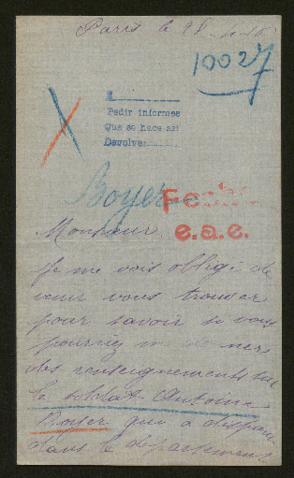 Paris le 28
10027
Pedir informes
Que se hace así
Devolver
Boyer
Fecha
e.a.e.
Monsieur
Je me vois obligé de
venir vous trouver
pour savoir si vous
pourriez me donner
des renseignements sur
le soldat Antoine
Boyer qui a disparu
dans le département